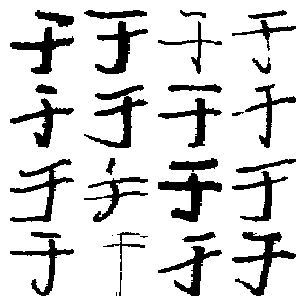 于于于于
于于于于
于于于于
于于于于